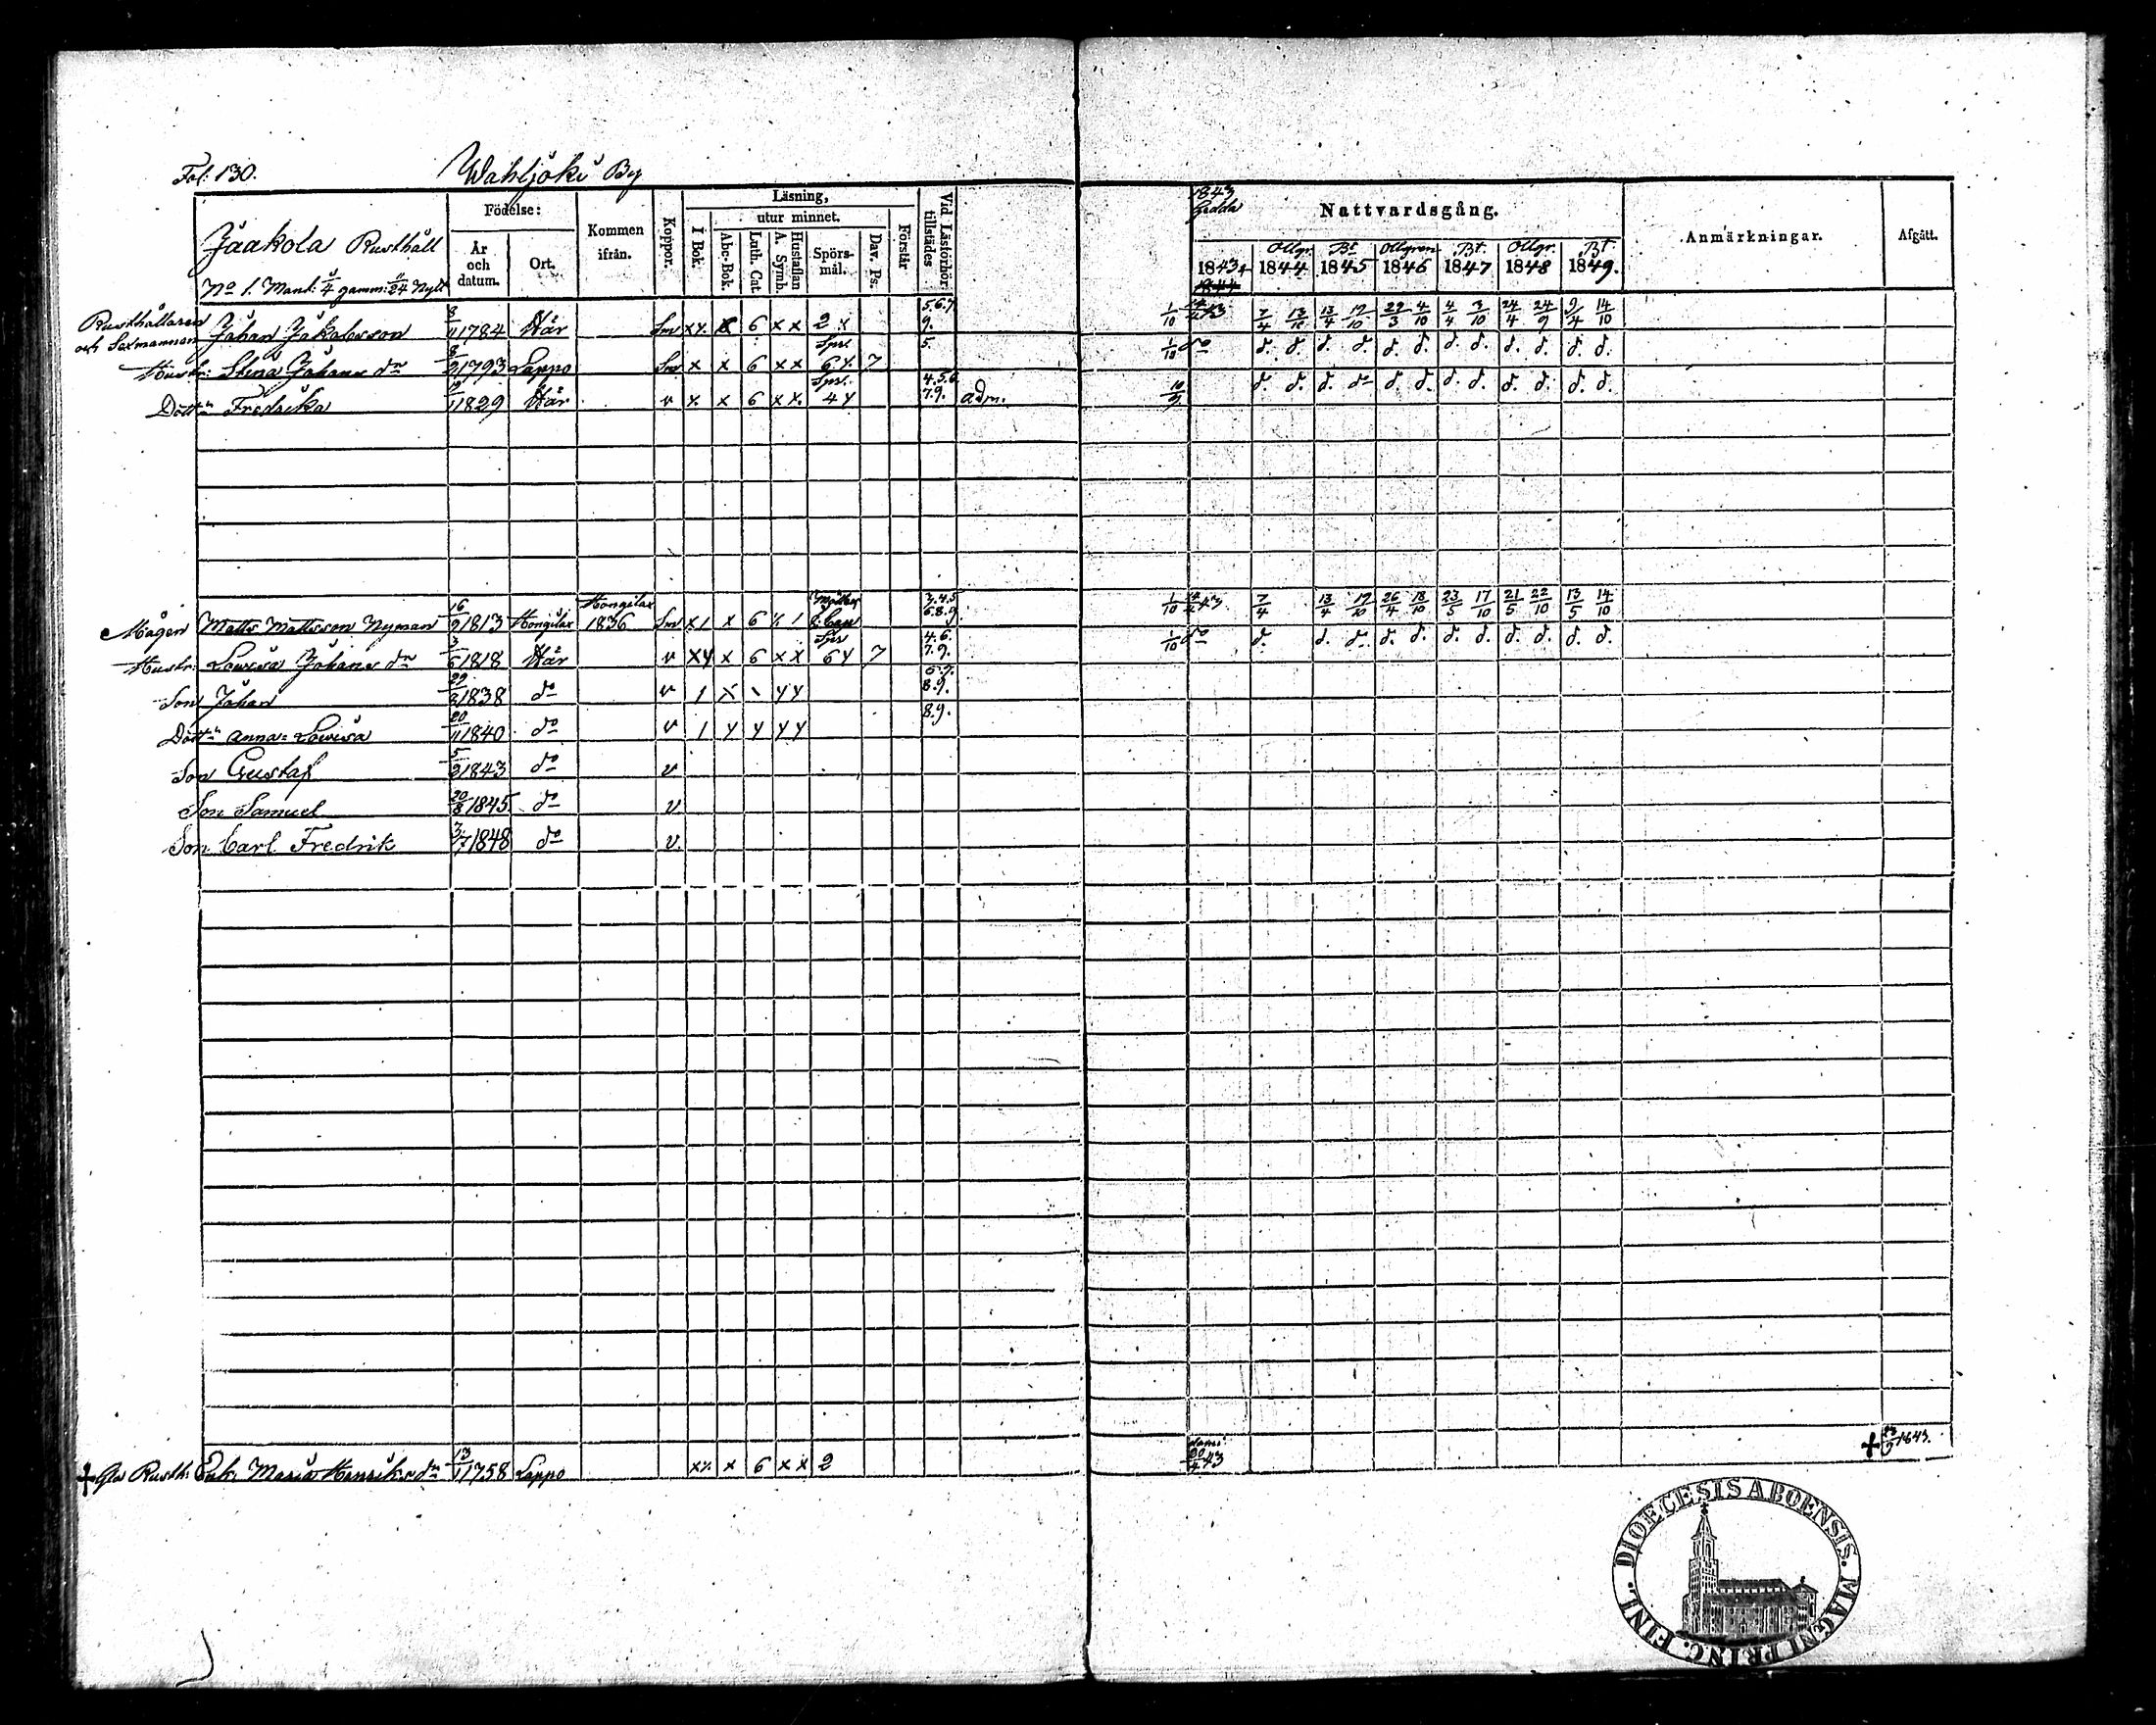 Fol: 130. Wahljoki By
1843 Hedda
Födelse: Läsning, Nattvardsgång.
utur minnet.
Jaakola Rusthåll År och datum. Ort. Kommen ifrån. Koppor. I Bok. Abc-Bok. Luth. Cat. A. Symb. Hustaflan Spörs-mål. Dav. Ps. Förstår Vid Läsförhör tillstädes Anmärkningar. Afgått.
Ollgr. Bt Ollgren Bt. Ollgr. Bt.
1843 1844 1845 1846 1847 1848 1849.
No 1. Mant: gamm: 11/24 Nytt
Rusthållaren och Sexmannen Johan Jakobsson 8/11 1784 Här Sm x 6 x x 2 5.6.7. 9. 1/10 7/4 13/10 13/4 19/10 29/3 4/10 4/4 3/10 24/4 24/9 9/4 14/10
Hustr: Stina Johans dr 1793 Lappo Sm x x 6 x x Spr. 6 7 5. 1/10 do d. d. d. d. d. d. d. d. d. d. d. d.
Dottn Fredrika 1829 Här v x 6 x x Spr. 4 4.5.6. 7.9. adm. d. d. d. d d. d. d. d. d. d. d. d.
Mågen Matts Mattsson Nyman 16/9 1813 Hongilax Hongilax 1836 Sm x 1 x 6 1 3.4.5 6.8.9. 1/10 43 7/4 13/4 19/10 26/4 18/10 23/5 17/10 21/5 22/10 13/5 14/10
Hustr: Lowisa Johans dr 3/6 1818 Här v x 6 x x 6 7 4.6. 7.9. 1/10 do d. d. d. d. d. d. d. d. d. d. d.
Son Johan 29/3 1838 do v 1 8.9.
Dottn Anna Lowisa 20/11 1840 do v 1 8.9.
Son Gustaf 1843 do v
Son Samuel 20/8 1845 do v.
Son Carl Fredrik 3/7 1848 do v.
+ Gla Rusth: Enk: Maria Henriks dr 13/1 1758 Lappo x 6 x x 2 43 + 1843.
DIOECESIS ABOENSIS. MAGNI PRINC. FINL.